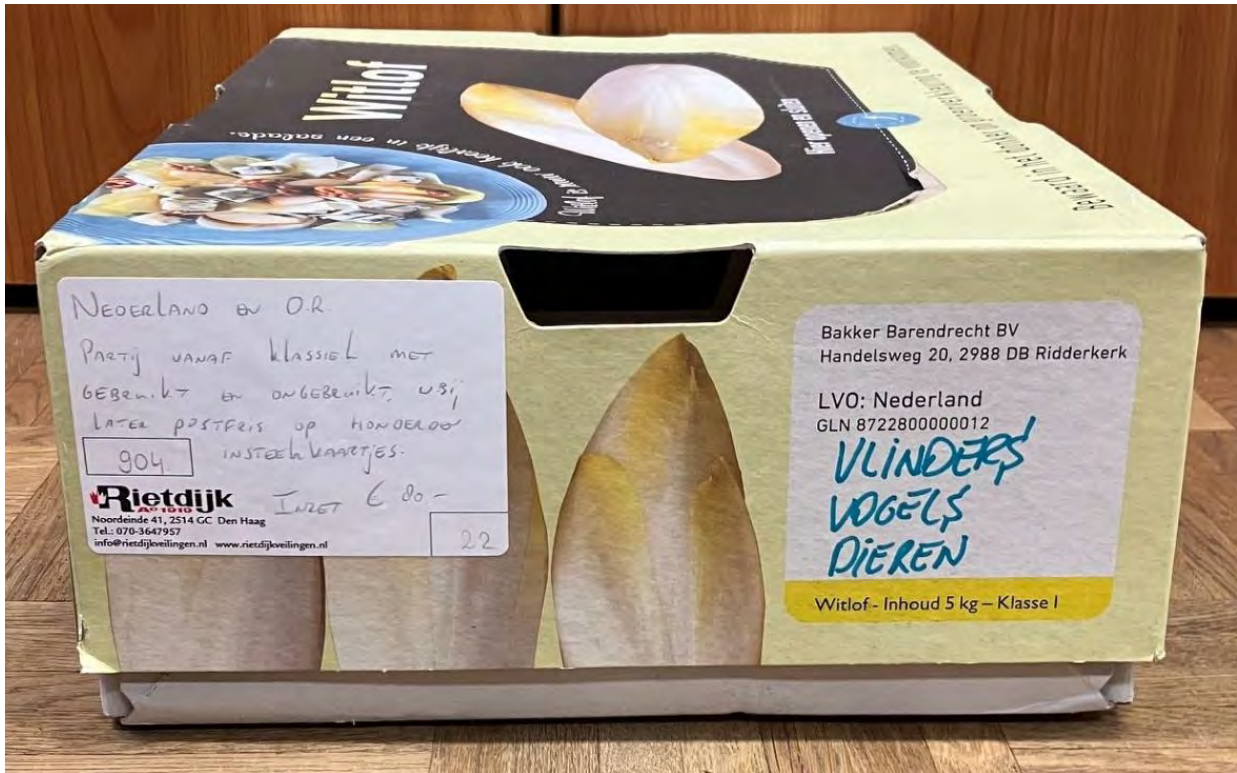 Witlof
Witlof is ook heerlijk in een salade.
Hier openen en sluiten
Bewaard in het donker
NEDERLAND EN O.R.
PARTIJ VANAF KLASSIEK MET
GEBRUIKT EN ONGEBRUIKT, WBIJ
LATER POSTFRIS OP HONDERDEN
904 INSTEEKKAARTJES.
Rietdijk
A° 1919
INZET € 80-
Noordeinde 41, 2514 GC Den Haag
Tel.: 070-3647957
info@rietdijkveilingen.nl www.rietdijkveilingen.nl
22
Bakker Barendrecht BV
Handelsweg 20, 2988 DB Ridderkerk
LVO: Nederland
GLN 8722800000012
VLINDERS
VOGELS
DIEREN
Witlof - Inhoud 5 kg – Klasse I